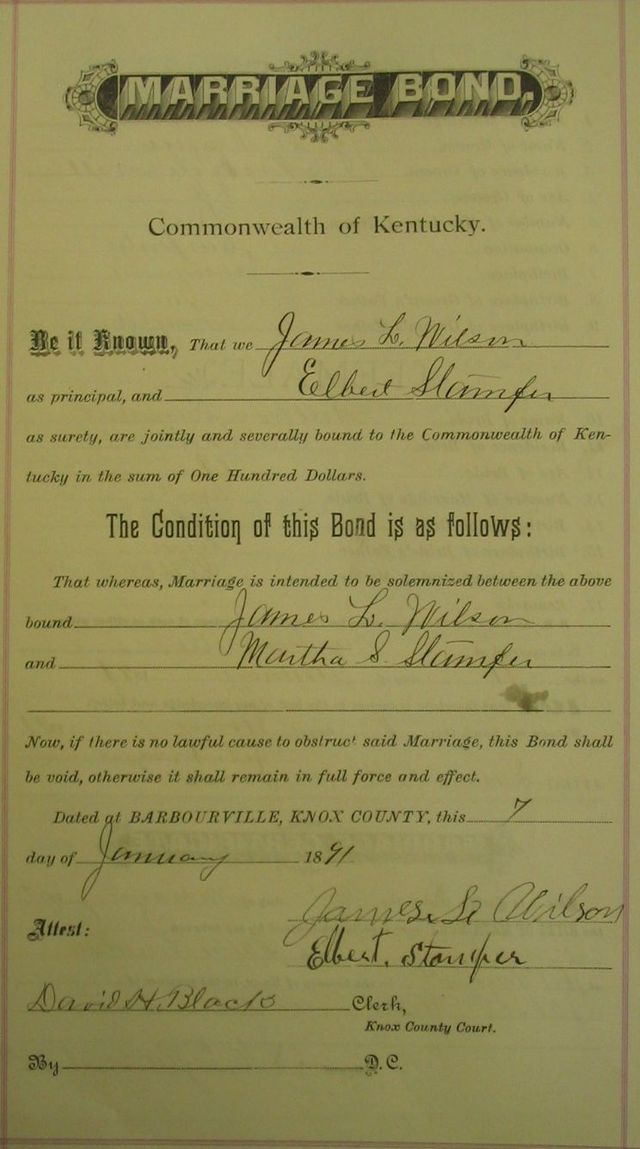 MARRIAGE BOND.
Commonwealth of Kentucky.
Be it Known, That we James L. Wilson
as principal, and Elbert Stamper
as surety, are jointly and severally bound to the Commonwealth of Ken-
tucky in the sum of One Hundred Dollars.
The Condition of this Bond is as follows:
That whereas, Marriage is intended to be solemnized between the above
bound James L. Wilson
and Martha S. Stamper
Now, if there is no lawful cause to obstruct said Marriage, this Bond shall
be void, otherwise it shall remain in full force and effect.
Dated at BARBOURVILLE, KNOX COUNTY, this 7
day of January 1891
James L Wilson
Attest:
Elbert. Stamper
David H. Black Clerk,
Knox County Court.
By D. C.